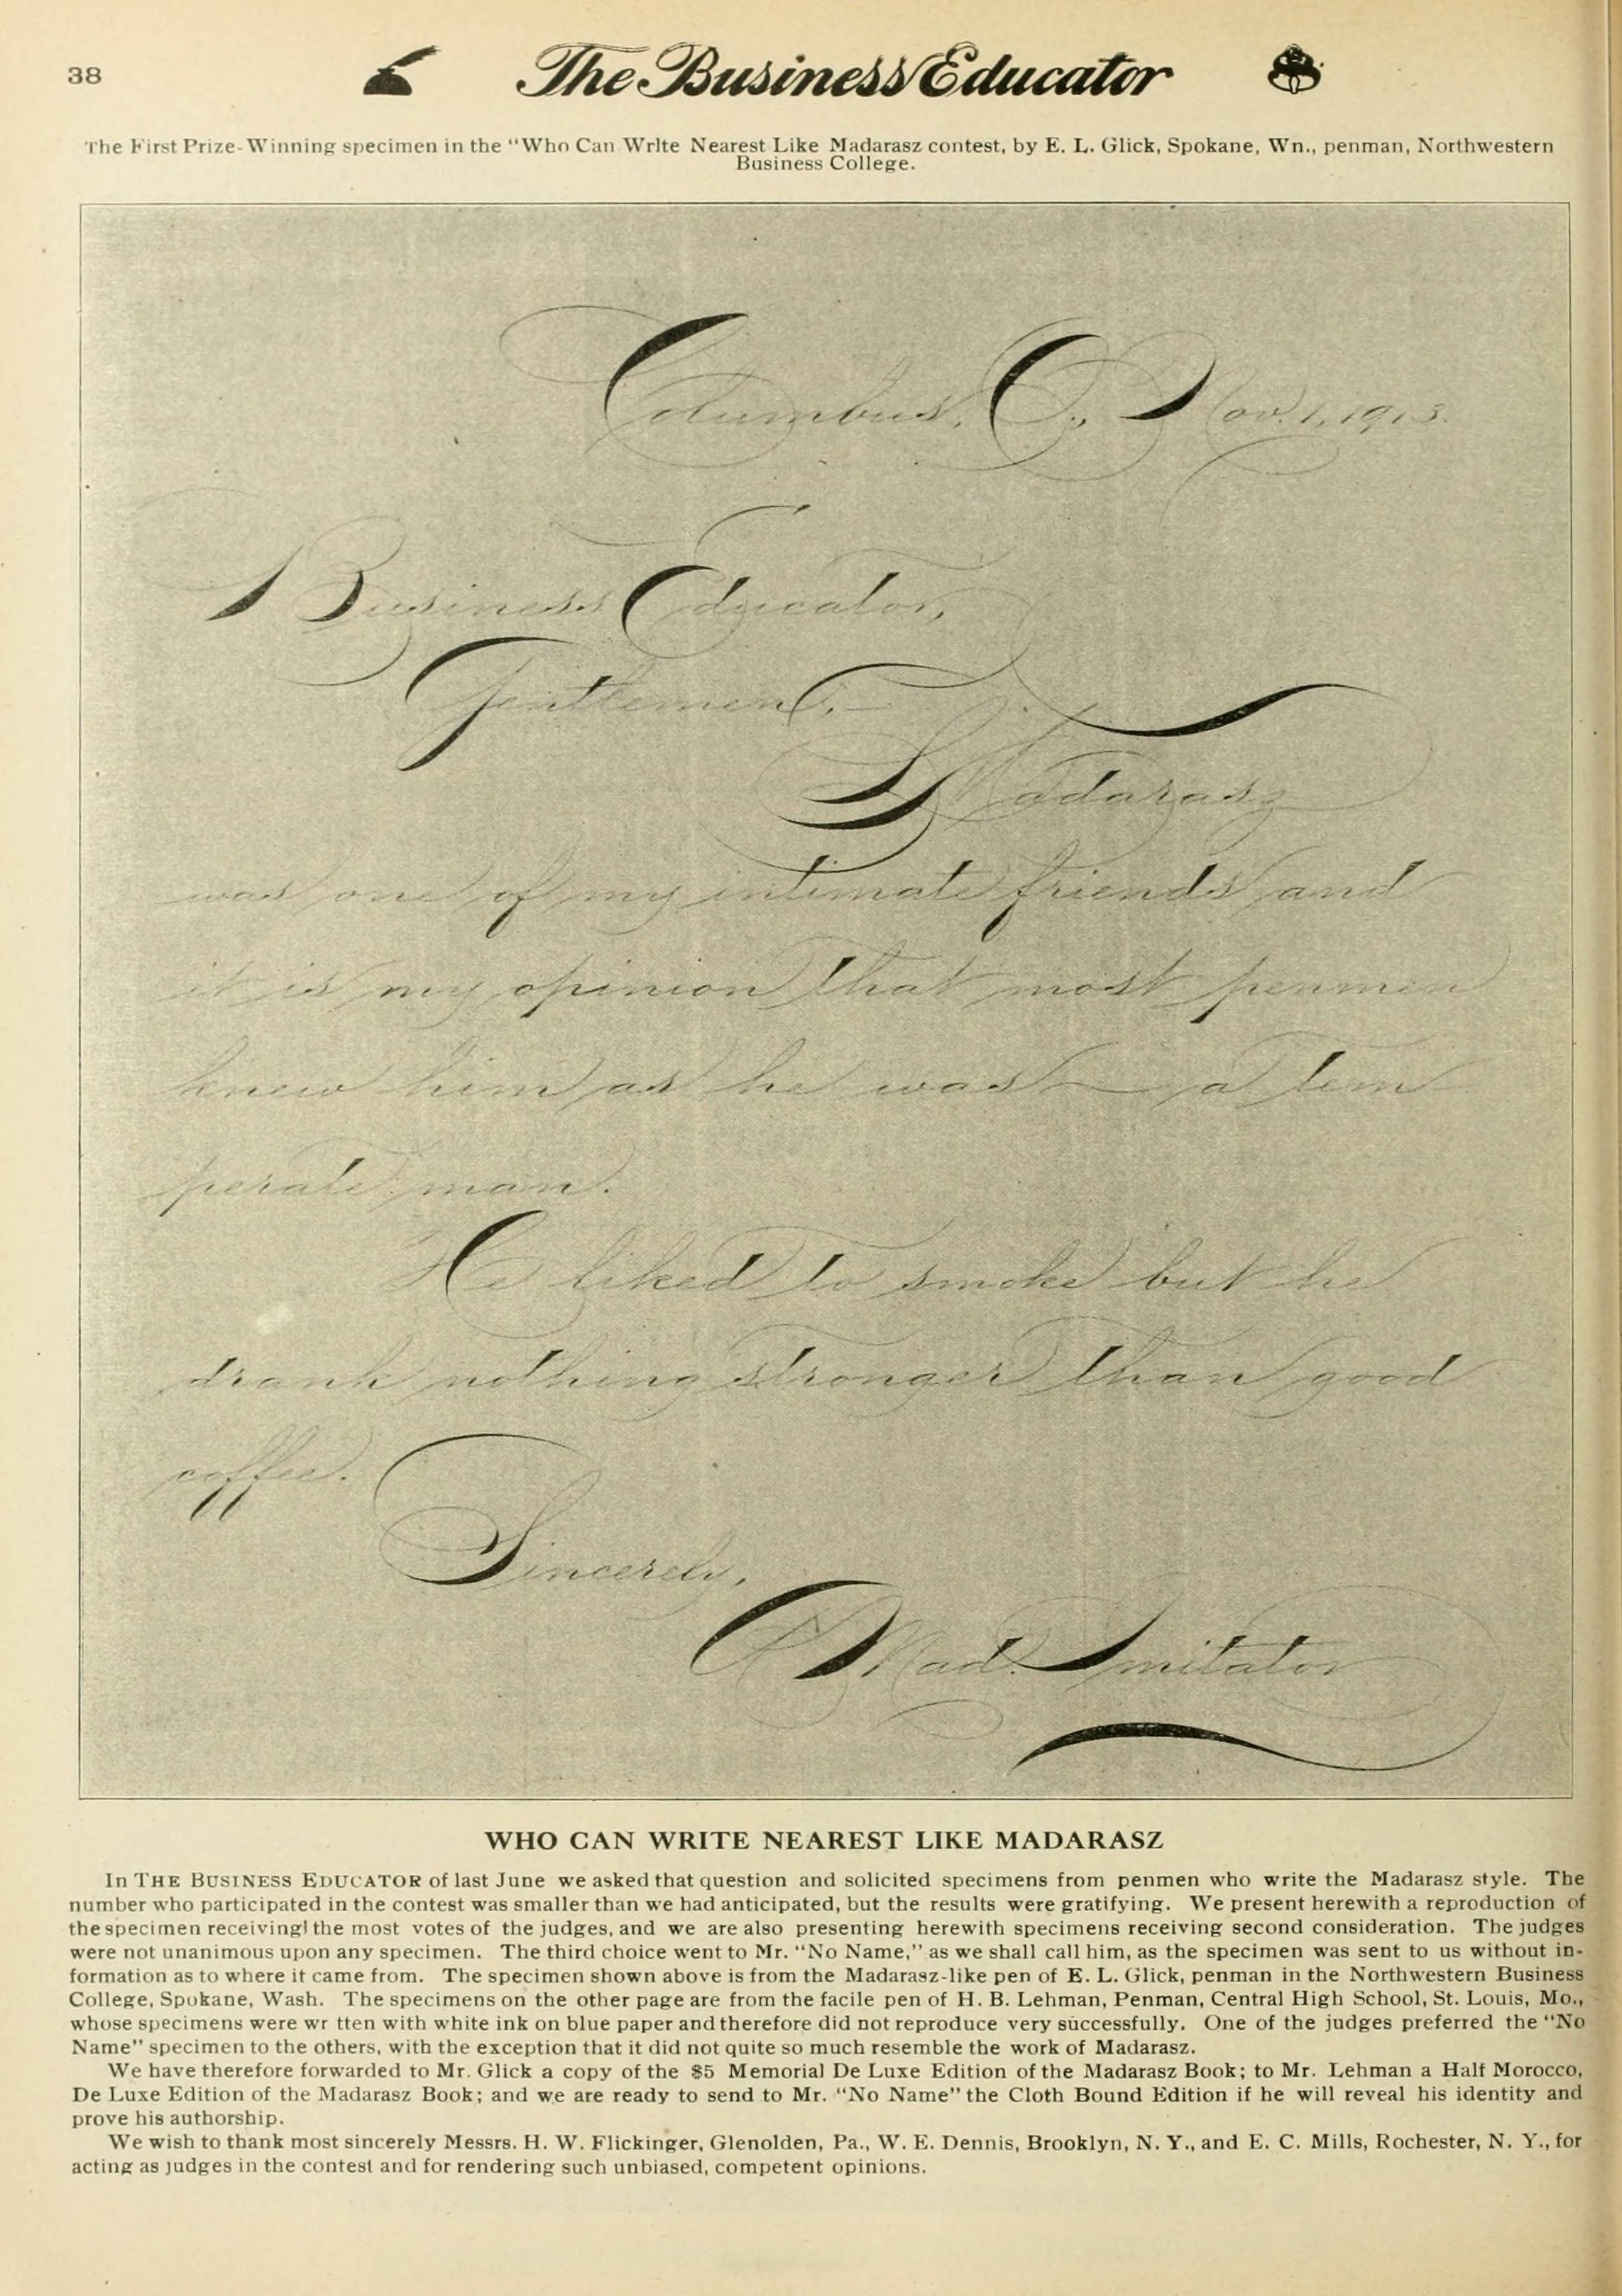 38
The Business Educator
The First Prize-Winning specimen in the "Who Can Write Nearest Like Madarasz contest, by E. L. Glick, Spokane, Wn., penman, Northwestern
Business College.
Columbus, O., Nov. 1, 1913.
Business Educator,
Gentlemen:—
L. Madarasz
was one of my intimate friends and
it is my opinion that most penmen
knew him as he was — a tem
perate man.
He liked to smoke but he
drank nothing stronger than good
coffee.
Sincerely,
A. Mad. Imitator
WHO CAN WRITE NEAREST LIKE MADARASZ
In THE BUSINESS EDUCATOR of last June we asked that question and solicited specimens from penmen who write the Madarasz style. The
number who participated in the contest was smaller than we had anticipated, but the results were gratifying. We present herewith a reproduction of
the specimen receiving the most votes of the judges, and we are also presenting herewith specimens receiving second consideration. The judges
were not unanimous upon any specimen. The third choice went to Mr. "No Name," as we shall call him, as the specimen was sent to us without in-
formation as to where it came from. The specimen shown above is from the Madarasz-like pen of E. L. Glick, penman in the Northwestern Business
College, Spokane, Wash. The specimens on the other page are from the facile pen of H. B. Lehman, Penman, Central High School, St. Louis, Mo.,
whose specimens were wr tten with white ink on blue paper and therefore did not reproduce very successfully. One of the judges preferred the "No
Name" specimen to the others, with the exception that it did not quite so much resemble the work of Madarasz.
We have therefore forwarded to Mr. Glick a copy of the $5 Memorial De Luxe Edition of the Madarasz Book; to Mr. Lehman a Half Morocco,
De Luxe Edition of the Madarasz Book; and we are ready to send to Mr. "No Name" the Cloth Bound Edition if he will reveal his identity and
prove his authorship.
We wish to thank most sincerely Messrs. H. W. Flickinger, Glenolden, Pa., W. E. Dennis, Brooklyn, N. Y., and E. C. Mills, Rochester, N. Y., for
acting as judges in the contest and for rendering such unbiased, competent opinions.